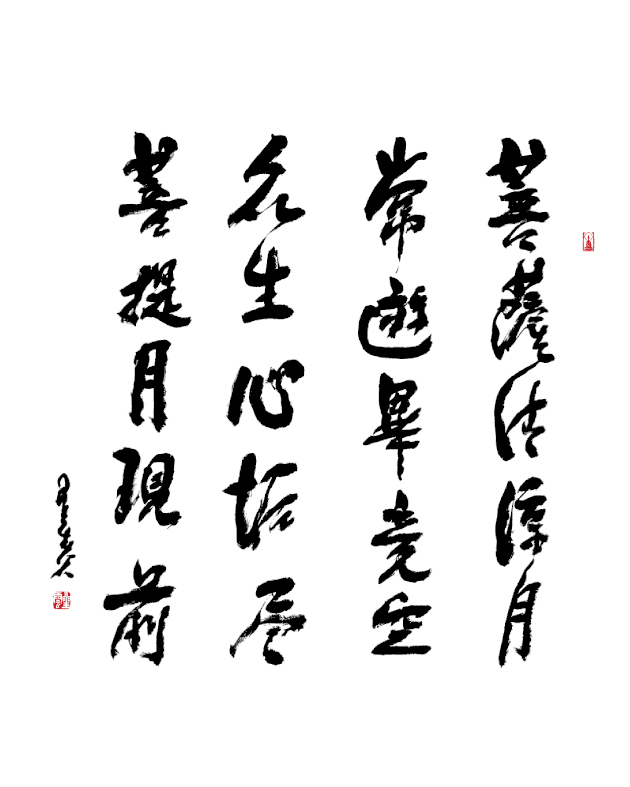 菩薩清涼月
常遊畢竟空
众生心垢尽
菩提月現前
星雲